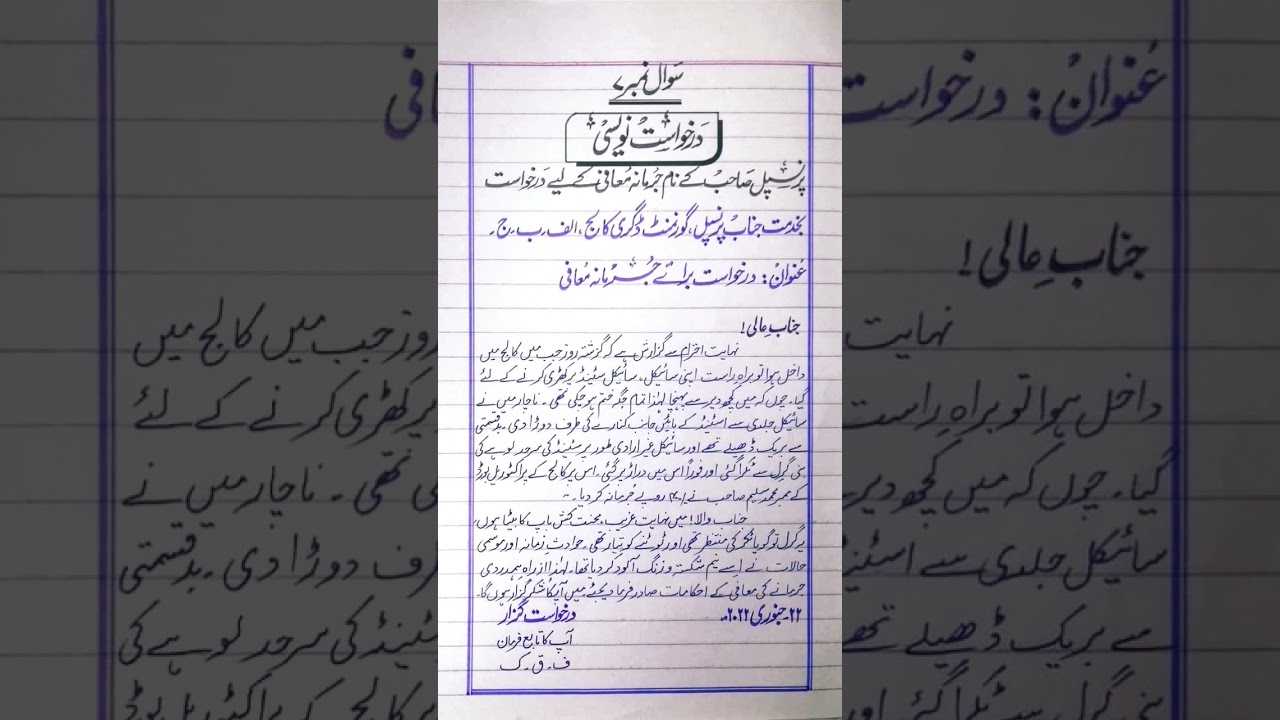 سوال نمبر ۷
درخواست نویسی
پرنسپل صاحب کے نام جرمانہ معافی کے لیے درخواست
بخدمت جناب پرنسپل، گورنمنٹ ڈگری کالج، الف۔ب۔ج۔
عُنوان: درخواست برائے جُرمانہ مُعافی
جنابِ عالی!
نہایت احترام سے گزارش ہے کہ گزشتہ روز جب میں کالج میں
داخل ہوا تو براہِ راست اپنی سائیکل، سائیکل سٹینڈ پر کھڑی کرنے کے لئے
گیا۔ چوں کہ میں کچھ دیر سے پہنچا لہٰذا تمام جگہ ختم ہو چکی تھی۔ ناچار میں نے
سائیکل جلدی سے اسٹینڈ کے بائیں جانب کنارے کی طرف دوڑا دی۔ بدقسمتی
سے بریک ڈھیلے تھے اور سائیکل غیر ارادی طور پر سٹینڈ کی سرحد لوہے کی
بنی گرِل سے ٹکرا گئی اور فوراً اس میں دراڑ پڑ گئی۔ اس پر کالج کے پراکٹوریل بورڈ
کے ممبر محمد سلیم صاحب نے روپے جُرمانہ کر دیا۔
جناب والا! میں نہایت غریب، محنت کش باپ کا بیٹا ہوں،
یہ گرل تو گویا ٹکر کی منتظر تھی اور ٹوٹنے کو تیار تھی۔ حوادث زمانہ اور موسمی
حالات نے اسے نیم شکستہ و زنگ آلود کر دیا تھا۔ لہٰذا ازراہِ ہمدردی
جرمانے کی معافی کے احکامات صادر فرما دیجئے میں آپ کا شکر گزار ہوں گا۔
۲۲۔جنوری ۲۰۲۲ء درخواست گزار
آپ کا تابع فرمان
ف۔ق۔ک